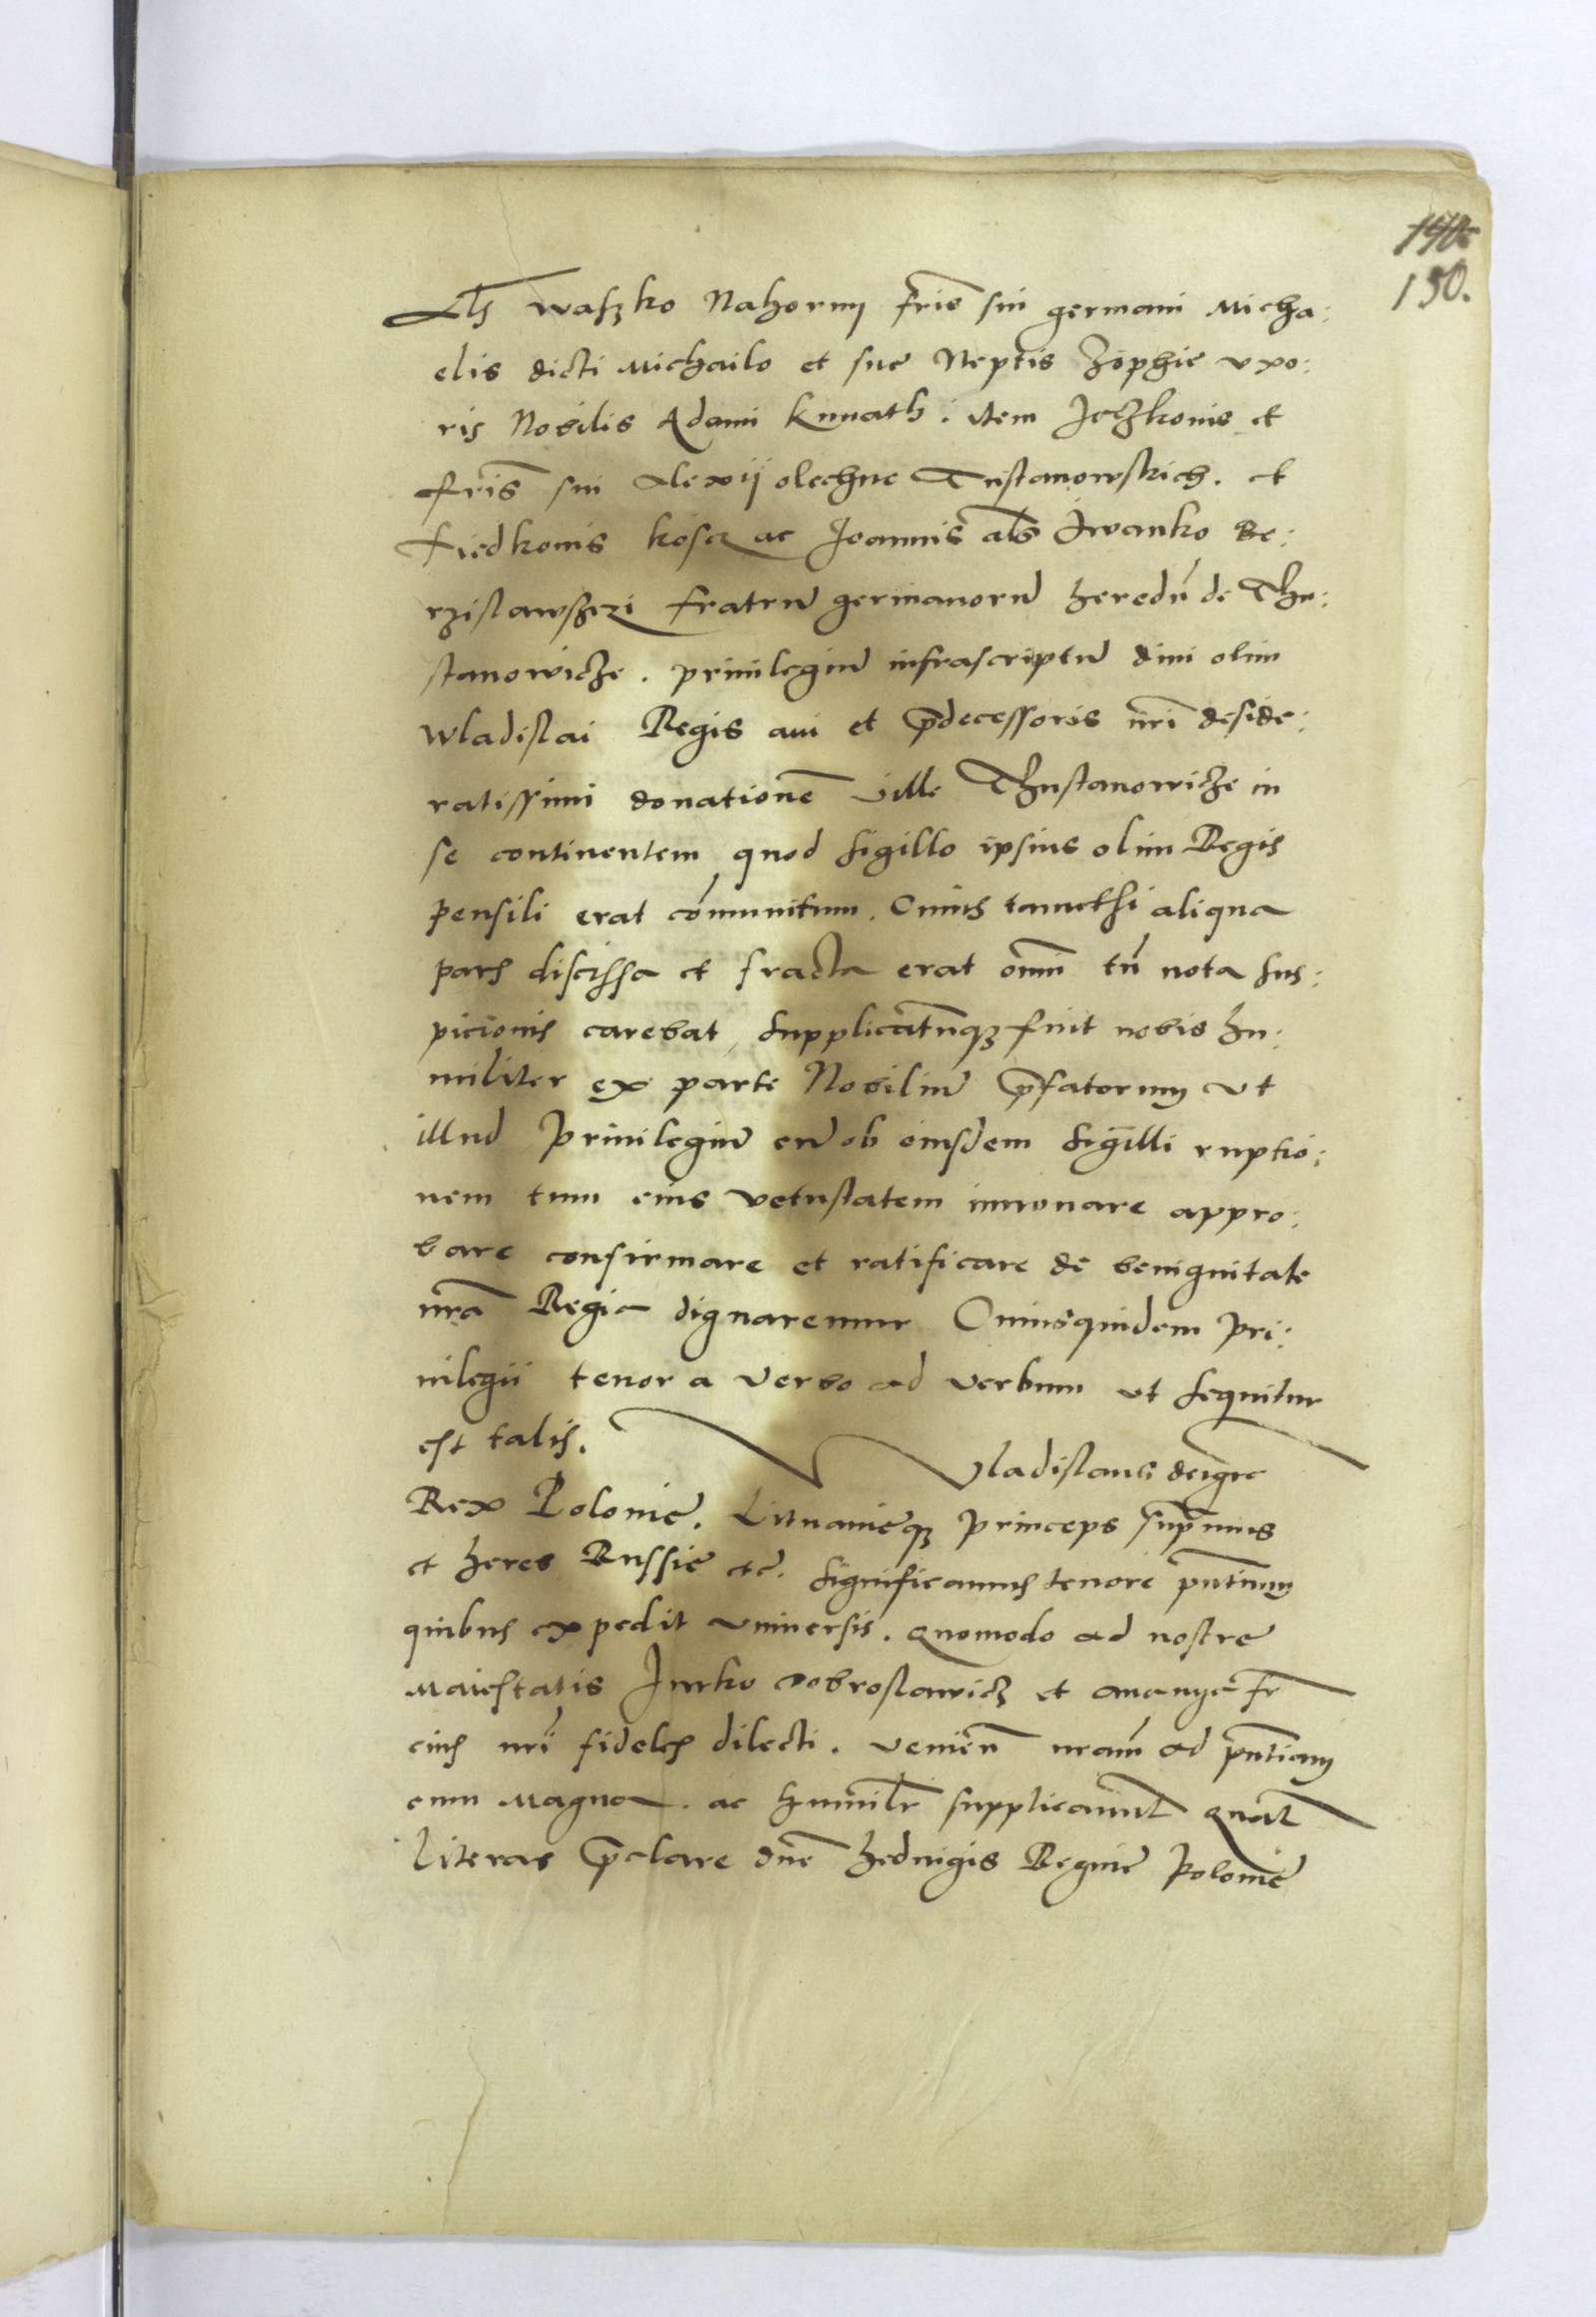 150.
Als waszko Nahorny fris sui germani Micha:
elis dicti Michailo et sue Neptis Zophie uxo:
ris Nobilis Adami Knuath. Item Jaczkonis et
fris sui Alexij olechne Tustanowskich. et
Fiedkonis kosa ac Joannis als Iwanko Be:
rzislawsczi fratrum germanorum heredum de Thu:
stanowicze. privilegium infrascriptum divi olim
Wladislai Regis avi et predecessoris nri deside:
ratissimi donationem ville Thustanowicze in
se continentem quod sigillo ipsius olim Regis
pensili erat communitum. Cuius tametsi aliqua
pars discissa et fracta erat omni tn nota sus:
picionis carebat, supplicatumque fuit nobis hu:
militer ex parte Nobilium prefatorum ut
illud Privilegium cum ob eiusdem sigilli ruptio:
nem tum eius vetustatem innovare appro:
bare confirmare et ratificare de benignitate
nra Regia dignaremur Cuiusquidem pri:
vilegii tenor a verbo ad verbum ut sequitur
est talis. Vladislaus dei gre
Rex Polonie. Lituanieque princeps supremus
et heres Russie etc. significamus tenore pntium
quibus expedit universis. quomodo ad nostre
Maiestatis Jurko dobroslawicz et fr
eius nri fideles dilecti. venien nram ad pntiam
cum magna. ac humilr supplicavit quat
literas preclare dne hedvigis Regine Polonie